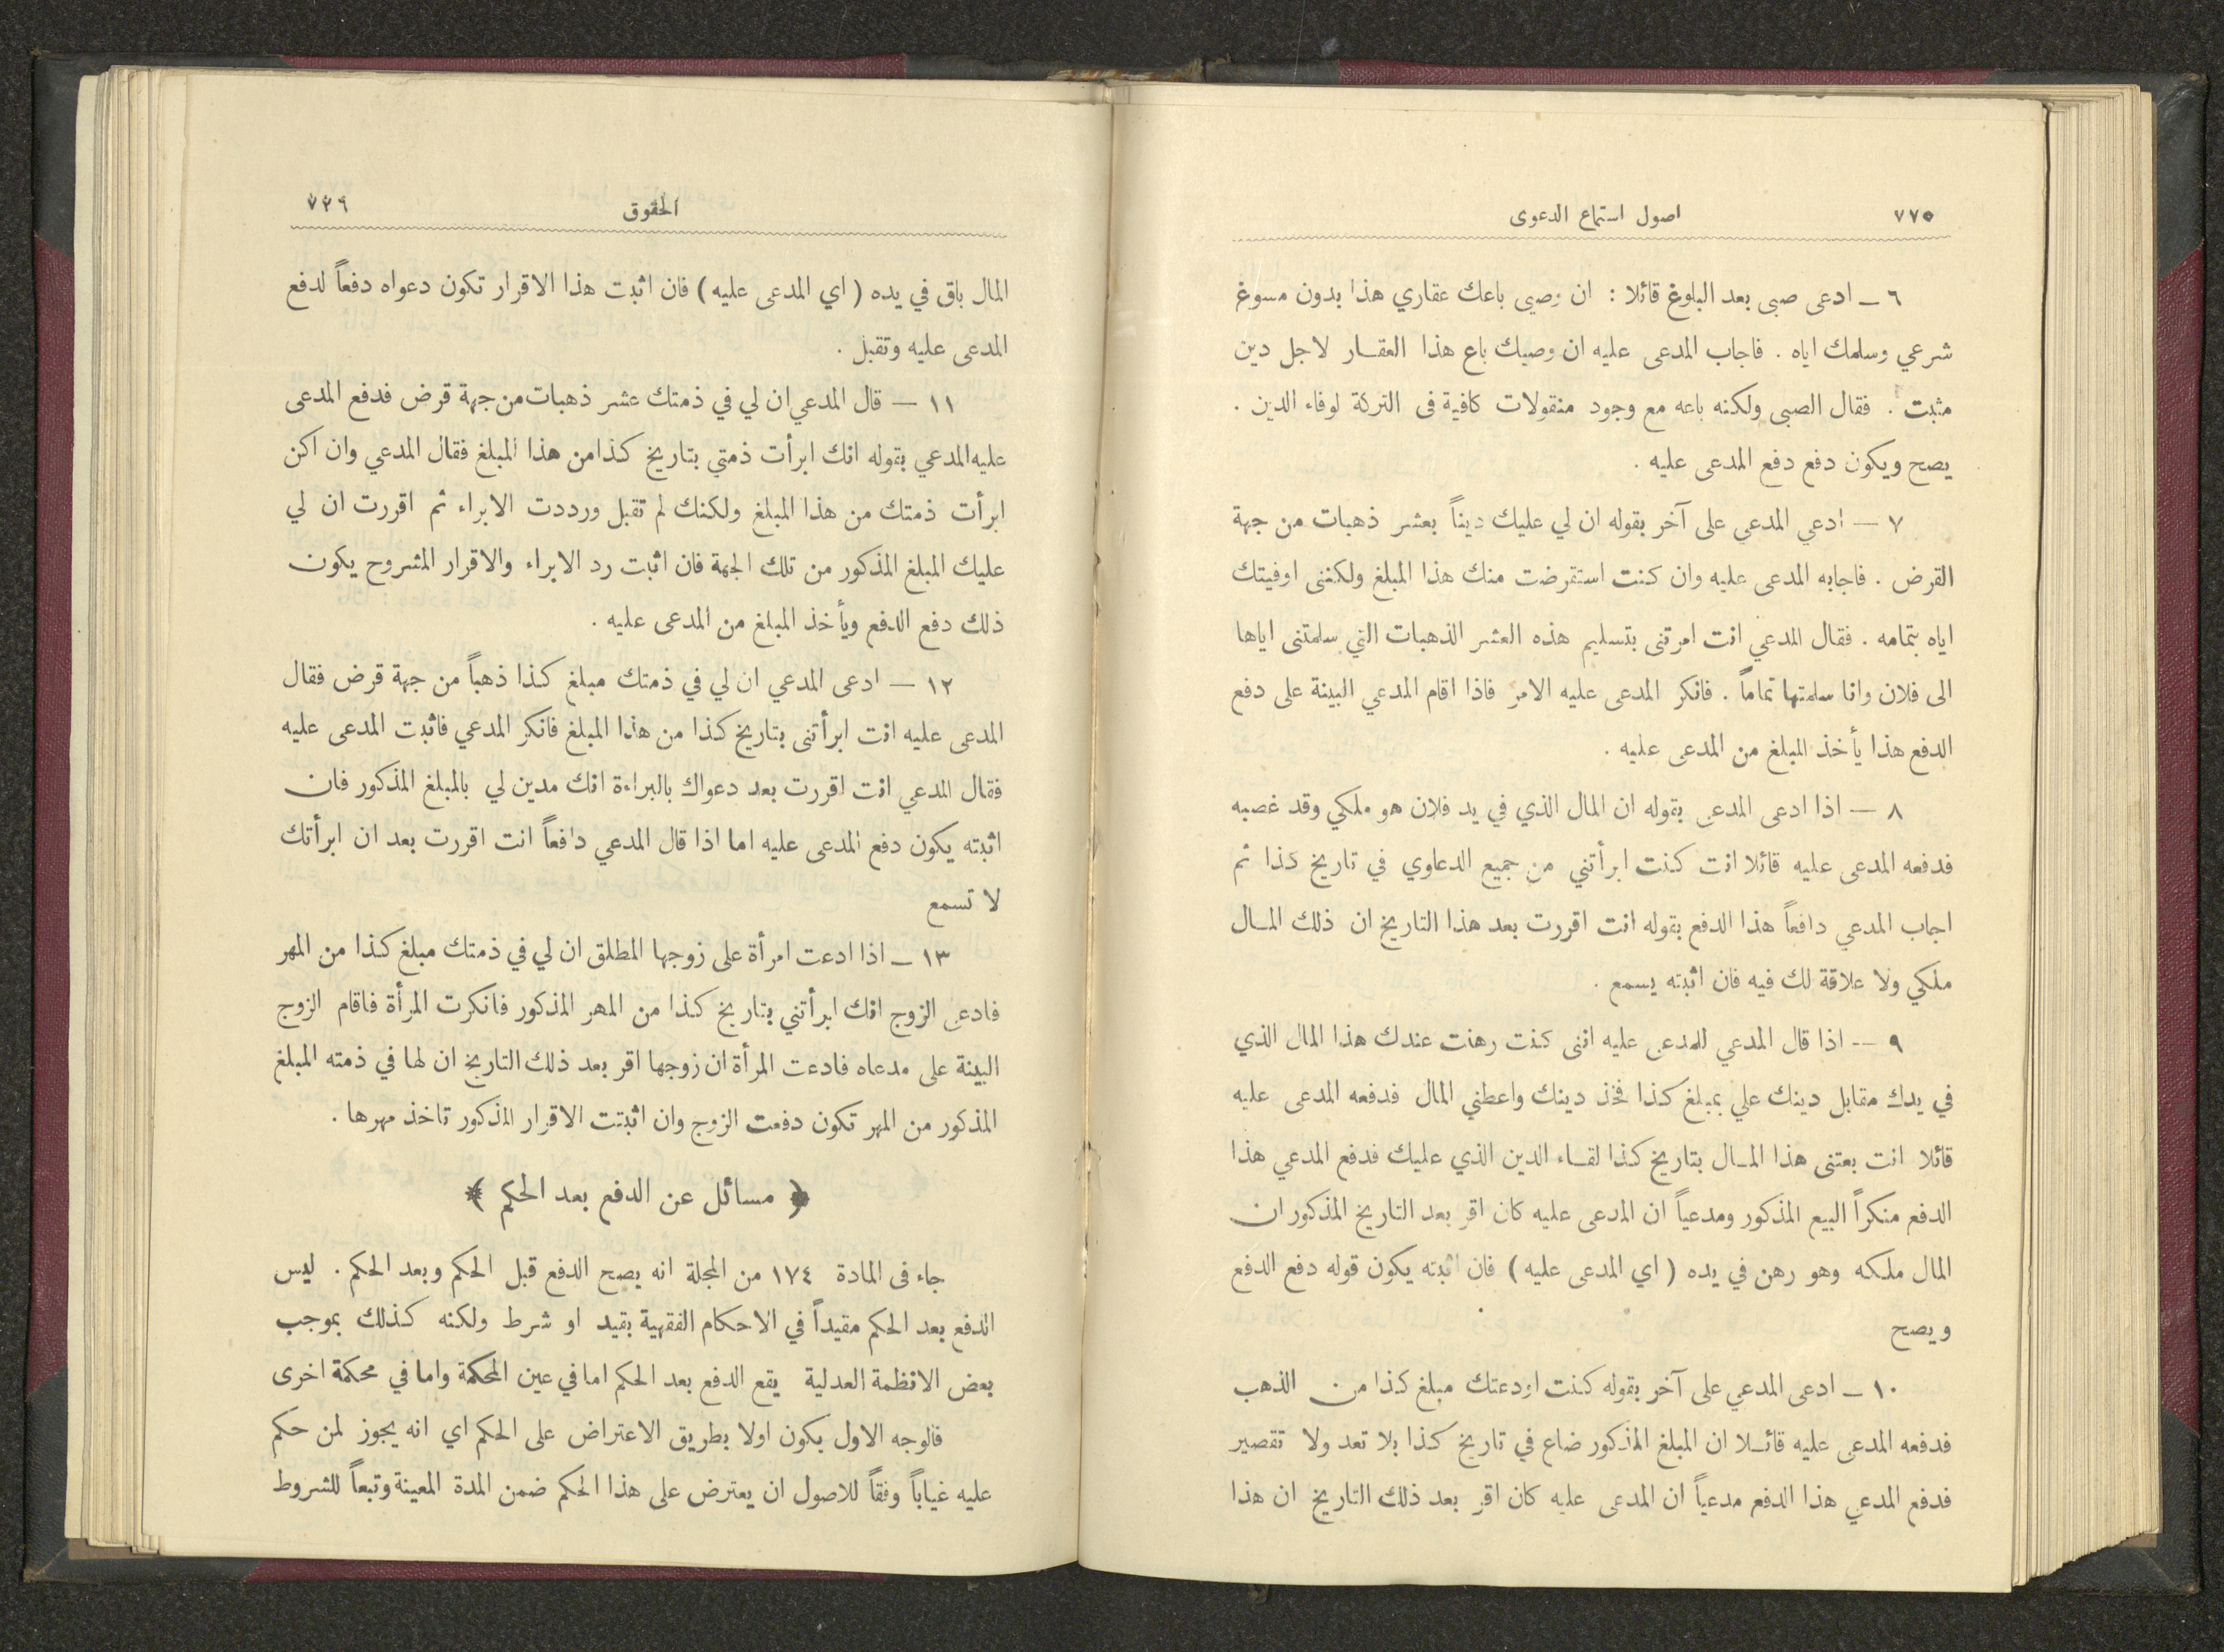 ٧٧٥
اصول استماع الدعوى
٦ ــ ادعى صبى بعد البلوغ قائلا : ان وصيى باعك عقاري هذا بدون مسوغ
شرعي وسلمك اياه . فاجاب المدعى عليه ان وصيك باع هذا العقـار لاجل دين
مثبت . فقال الصبى ولكنه باعه مع وجود منقولات كافية فى التركة لوفاء الدين .
يصح ويكون دفع دفع المدعى عليه .
٧ — ادعي المدعي على آخر بقوله ان لي عليك ديناً بعشر ذهبات من جهة
القرض . فاجابه المدعى عليه وان كنت استقرضت منك هذا المبلغ ولكننى اوفيتك
اياه بتمامه . فقال المدعي انت امرتنى بتسليم هذه العشر الذهبات التي سلمتنى اياها
الى فلان وانا سلمتها تماماً . فانكر المدعى عليه الامر فاذا اقام المدعي البينة على دفع
الدفع هذا يأخذ المبلغ من المدعى عليه .
٨ — اذا ادعى المدعى بقوله ان المال الذي في يد فلان هو ملكي وقد غصبه
فدفعه المدعى عليه قائلا انت كنت ابرأتني من جميع الدعاوي في تاريخ كذا ثم
اجاب المدعي دافعاً هذا الدفع بقوله انت اقررت بعد هذا التاريخ ان ذلك المـال
ملكي ولا علاقة لك فيه فان اثبته يسمع .
٩ -- اذا قال المدعي للمدعى عليه اننى كنت رهنت عندك هذا المال الذي
في يدك مقابل دينك علي بمبلغ كذا فخذ دينك واعطني المال فدفعه المدعى عليه
قائلا انت بعتنى هذا المـال بتاريخ كذا لقـاء الدين الذي عليك فدفع المدعي هذا
الدفع منكراً البيع المذكور ومدعياً ان المدعى عليه كان اقر بعد التاريخ المذكور ان
المال ملكه وهو رهن في يده ( اي المدعى عليه ) فان اثبته يكون قوله دفع الدفع
ويصح
١٠ ــ ادعى المدعي على آخر بقوله كنت اودعتك مبلغ كذا من الذهب
فدفعه المدعى عليه قائـلا ان المبلغ المذكور ضاع في تاريخ كذا بلا تعد ولا تقصير
فدفع المدعي هذا الدفع مدعياً ان المدعى عليه كان اقر بعد ذلك التاريخ ان هذا
الحقوق
٧٣٦
المال باق في يده ( اي المدعى عليه ) فان اثبت هذا الاقرار تكون دعواه دفعاً لدفع
المدعى عليه وتقبل .
١١ — قال المدعي ان لي في ذمتك عشر ذهبات من جهة قرض فدفع المدعى
عليه المدعي بقوله انك ابرأت ذمتي بتاريخ كذا من هذا المبلغ فقال المدعي وان اكن
ابرأت ذمتك من هذا المبلغ ولكنك لم تقبل ورددت الابراء ثم اقررت ان لي
عليك المبلغ المذكور من تلك الجهة فان اثبت رد الابراء والاقرار المشروح يكون
ذلك دفع الدفع ويأخذ المبلغ من المدعى عليه .
١٢ — ادعى المدعي ان لي في ذمتك مبلغ كذا ذهباً من جهة قرض فقال
المدعى عليه انت ابرأتنى بتاريخ كذا من هذا المبلغ فانكر المدعي فاثبت المدعى عليه
فقال المدعي انت اقررت بعد دعواك بالبراءة انك مدين لي بالمبلغ المذكور فان
اثبته يكون دفع المدعى عليه اما اذا قال المدعي دافعاً انت اقررت بعد ان ابرأتك
لا تسمع
١٣ ــ اذا ادعت امرأة على زوجها المطلق ان لي في ذمتك مبلغ كذا من المهر
فادعى الزوج انك ابرأتني بتاريخ كذا من المهر المذكور فانكرت المرأة فاقام الزوج
البينة على مدعاه فادعت المرأة ان زوجها اقر بعد ذلك التاريخ ان لها في ذمته المبلغ
المذكور من المهر تكون دفعت الزوج وان اثبتت الاقرار المذكور تاخذ مهرها .
﴿ مسائل عن الدفع بعد الحكم ﴾
جاء فى المادة ١٧٤ من المجلة انه يصح الدفع قبل الحكم وبعد الحكم . ليس
الدفع بعد الحكم مقيداً في الاحكام الفقهية بقيد او شرط ولكنه كذلك بموجب
بعض الانظمة العدلية يقع الدفع بعد الحكم اما في عين المحكمة واما في محكمة اخرى
فالوجه الاول يكون اولا بطريق الاعتراض على الحكم اي انه يجوز لمن حكم
عليه غياباً وفقاً للاصول ان يعترض على هذا الحكم ضمن المدة المعينة وتبعاً للشروط